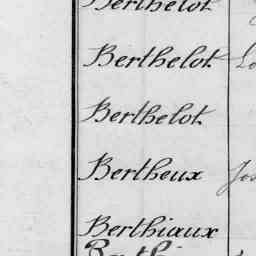 Berthelot
Berthelot
Berthelot
Bertheux Jos
Berthiaux